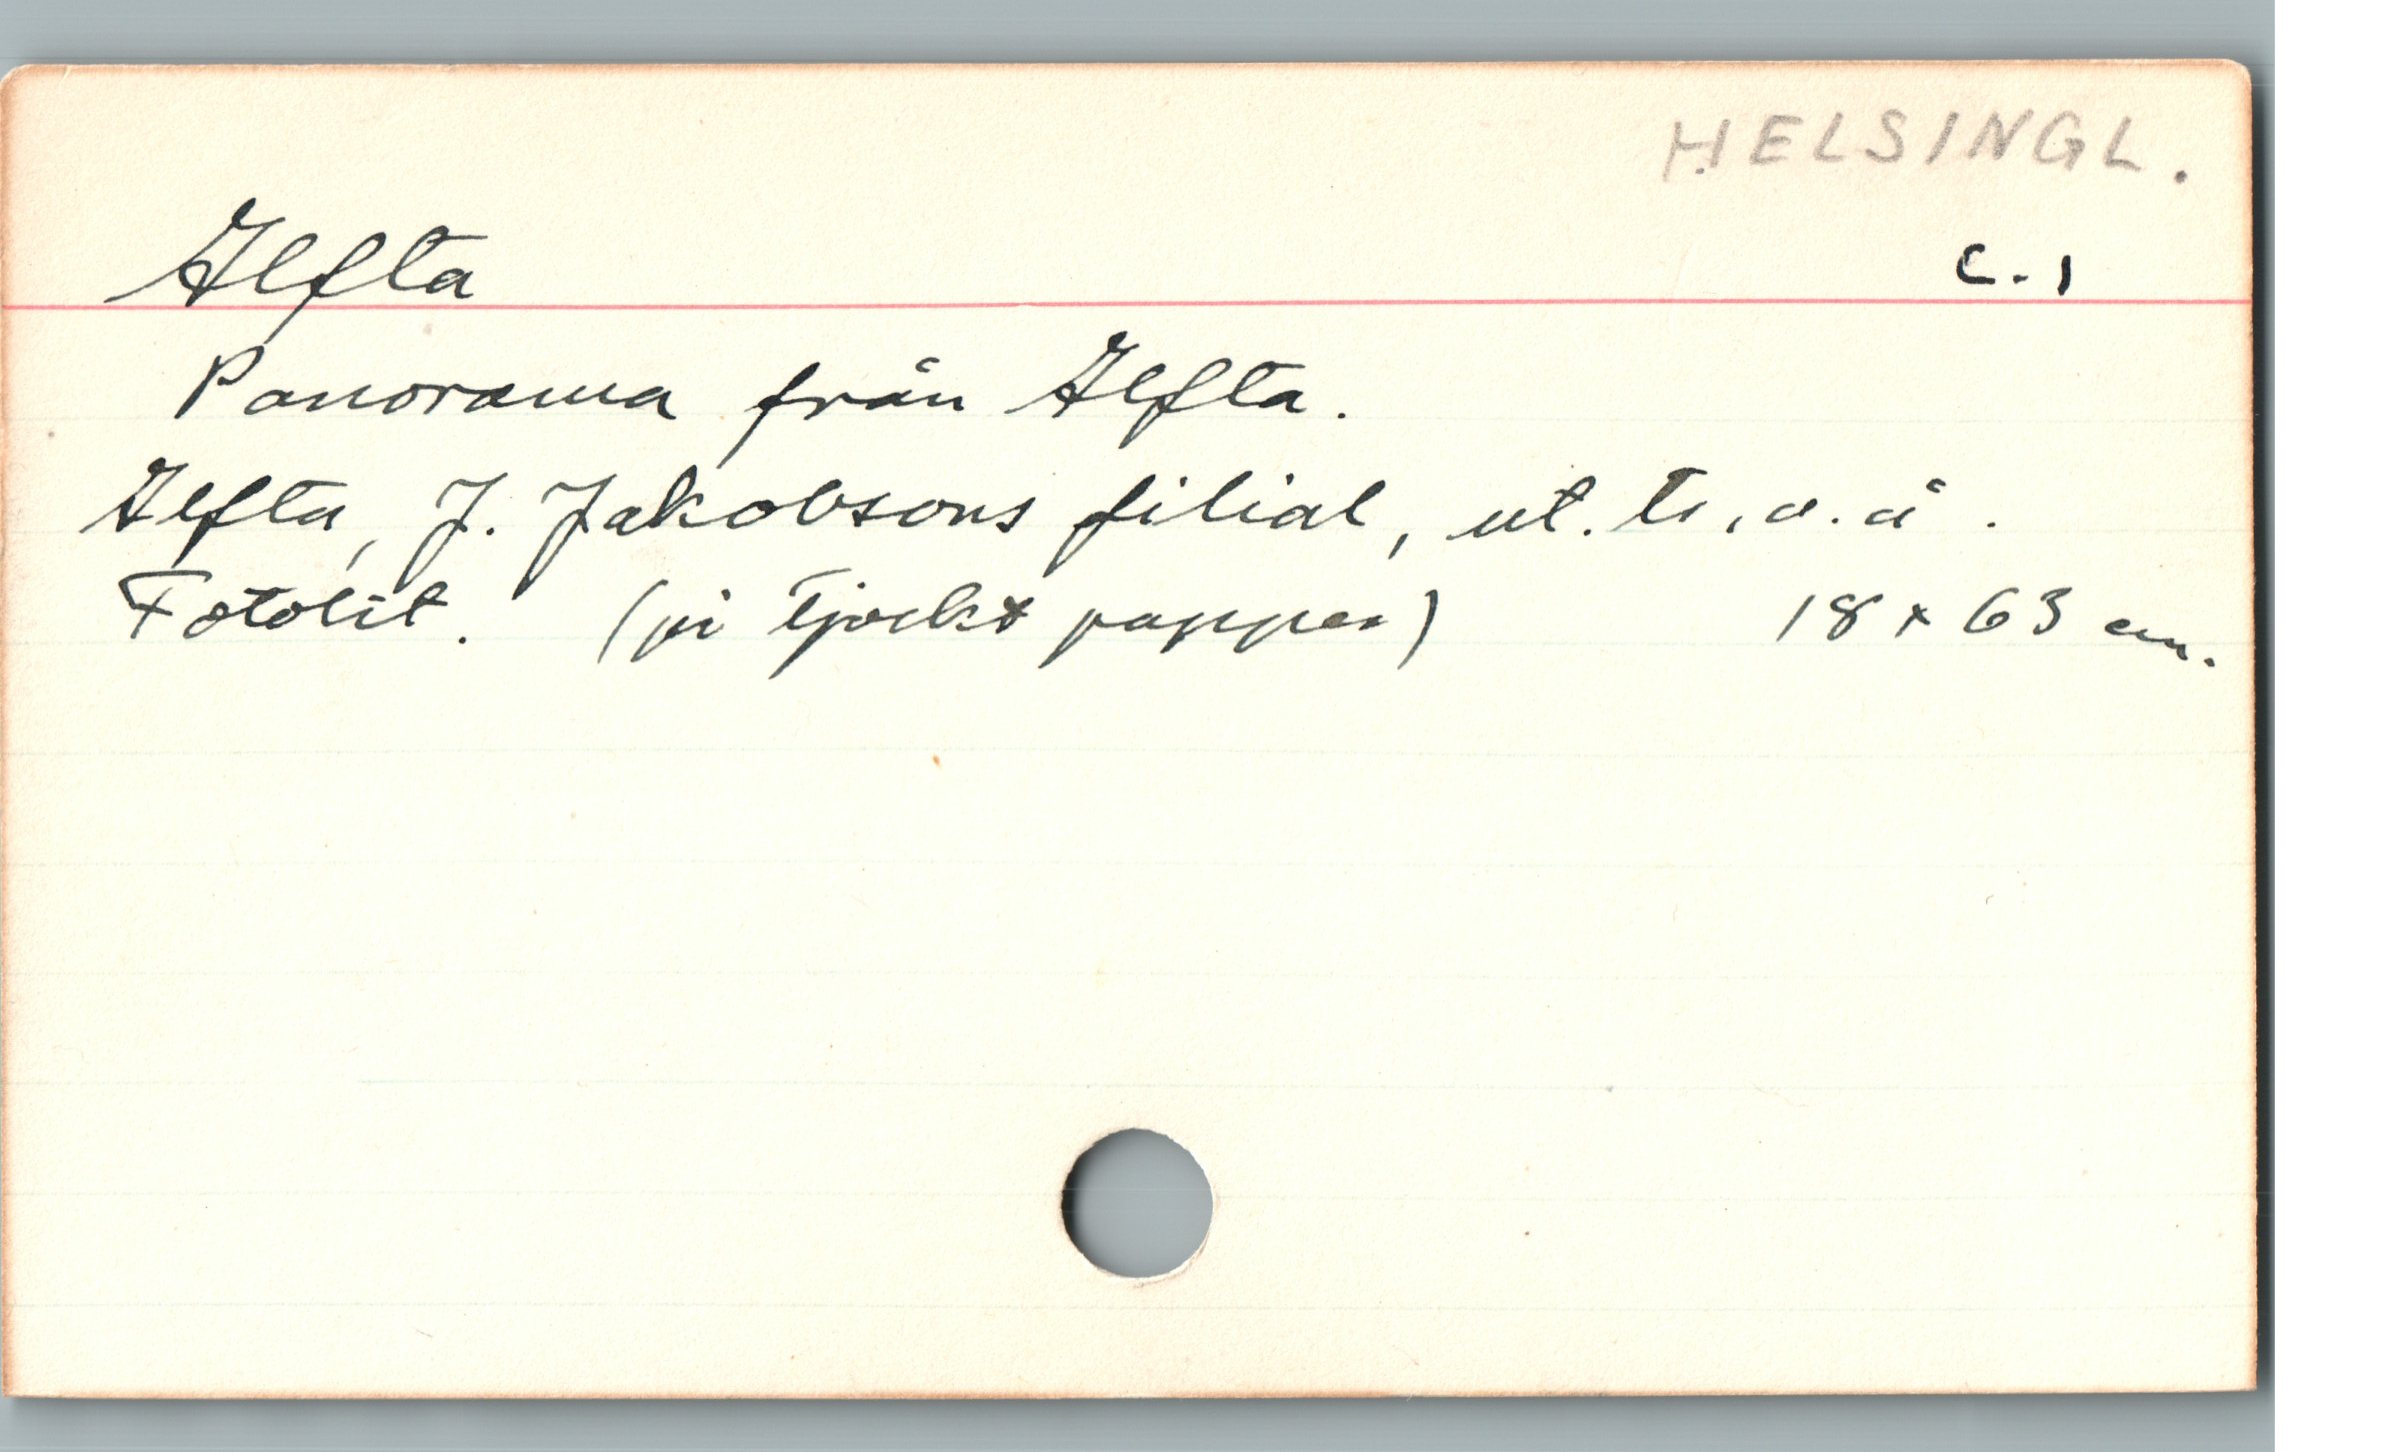 HELSINGL.
Alfta C.1
Panorama från Alfta.
Alfta, J. Jakobsons filial, ut. tr., o. å.
Fotolit. (på tjockt papper) 18 x 63 cm.